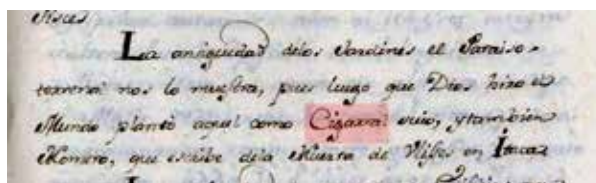 La antiguedad delos Jardines el Paraiso
terrenal nos lo muestra, pues luego que Dios hizo el
Mundo plantó aquel como Cigarral suio, ytambien
Homero, que escribe dela Huerta de Ulises en Ítaca